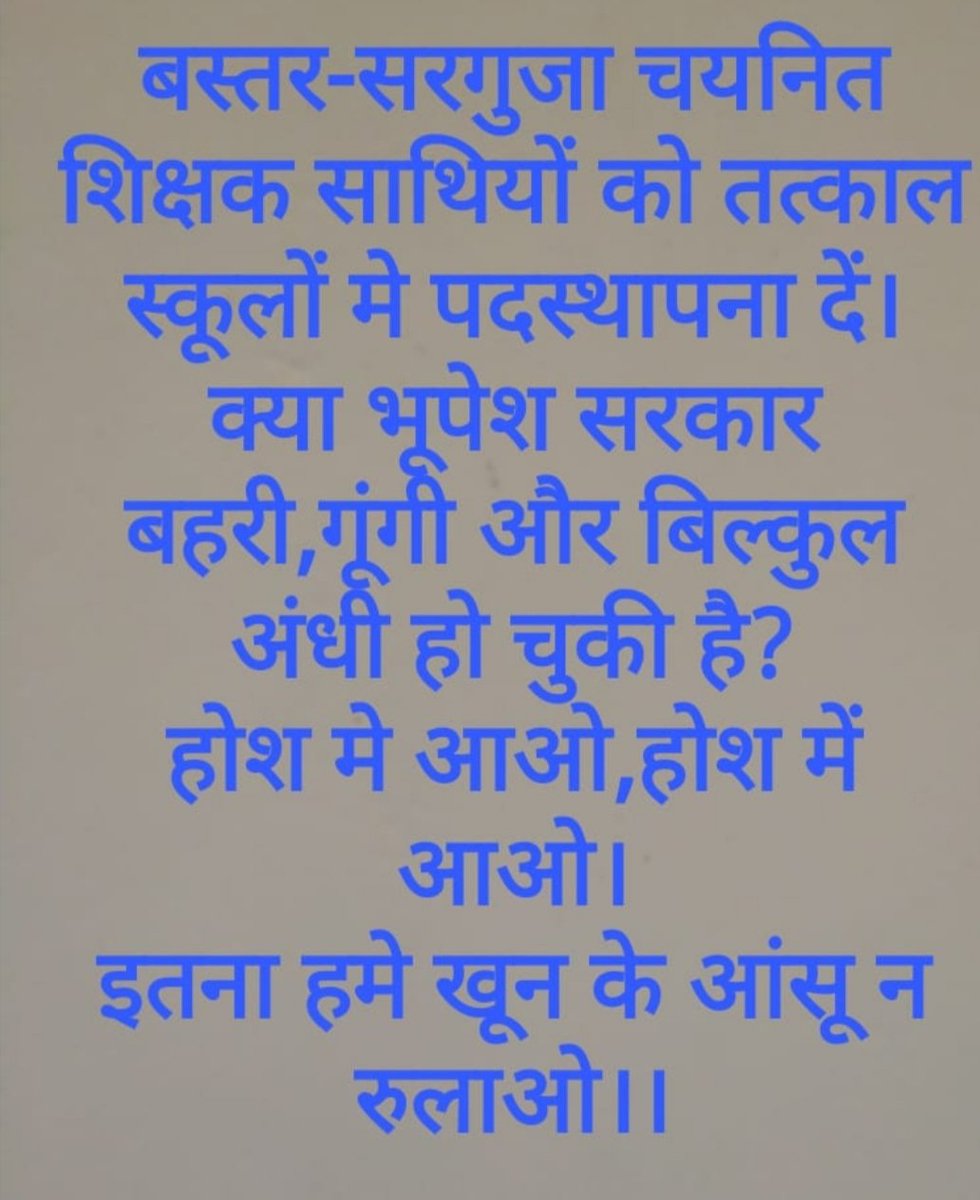 बस्तर-सरगुजा चयनित
शिक्षक साथियों को तत्काल
स्कूलों मे पदस्थापना दें।
क्या भूपेश सरकार
बहरी,गूंगी और बिल्कुल
अंधी हो चुकी है?
होश मे आओ,होश में
आओ।
इतना हमे खून के आंसू न
रुलाओ।।